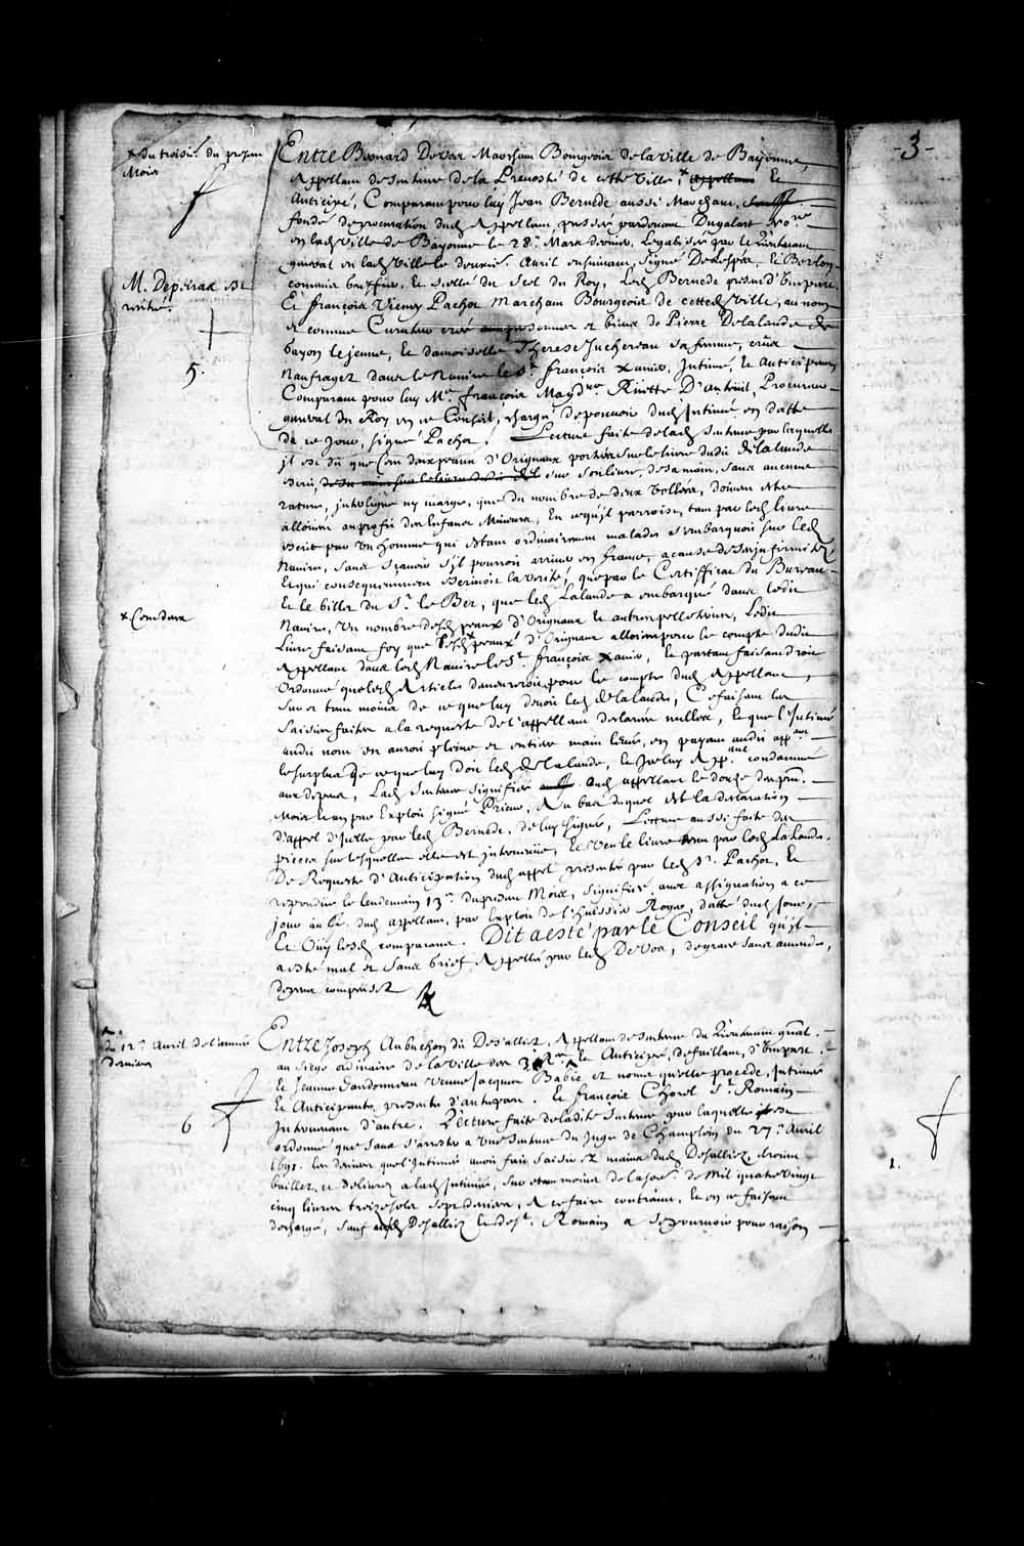 -3-
x du troisie. du present
Mois
M. Depeiras se
retire.
5.
Entre Bernard Devar Marchant Bourgeois de la Ville de Bayonne,
Appellant de Sentence de la Prevosté de cette Ville, x appellant Et
Anticipé, Comparant pour luy Jean Bernede aussi Marchant,
fondé de procuration dud. Appellant, passée pardevant Dugalart
en lad. Ville de Bayonne le 28e. Mars dernier, Legalisée par le Lieutenant
general en lad. Ville le deuxie. Avril ensuivant, signé
commis au greffier, Et scellé du Scel du Roy, Led. Bernede present d'une part,
Et françois Vienay Pachot Marchant Bourgeois de cetted. Ville, au nom
et comme Curateur créé aux personnes et biens de Pierre Delalande de
Gayon le jeune, Et damoiselle Therese Juchereau sa femme, crûs
Naufragez dans le Navire le St. françois Xavier, Intimé, Et Anticipant
Comparant pour luy Me. françois Magdne. Ruette D'auteüil, Procureur
general du Roy en ce Conseil, chargé de pouvoir dud. Intimé, en datte
de ce jour, signé Pachot. Lecture faite de lad. Sentence par laquelle
il est dit que cent deux peaux d'Orignaux portées sur le livre dudit delalande
écrit, sur son livre, de sa main, sans aucune
rature, interligne ny marge, que du nombre de deux ballots, doivent estre
alloüées au profit des Enfans Mineurs, En ce qu'il paroist, tant par led. livre
escrit par un homme qui estant ordinairement malades s'embarquoit sur led.
Navire, sans sçavoir s'il pourroit arriver en france, a cause de ses infirmitez,
Et qui consequemment escrivoit la verité, que par le Certifficat du Bureau
Et le billet du Sr. le Ber, que led. Lalande a embarqué dans ledit
x Cent deux
Navire, Un nombre desd. peaux d'Orignaux et autres pelleteries, Ledit
Livre faisant foy que lesd. x peaux d'Orignaux alloüées pour le compte dudit
Appellant dans led. Navire le St. françois Xavier, Et partant faisant droit
Ordonné que lesd. Articles demeureront pour le compte dud. Appellant,
sur et tant moins de ce que luy devoit led. delalande, Ce faisant les
Saisies faites a la requeste de l'appellant declarées nulles, Et que l'Intimé
audit nom en auroit pleine et entiere main levée, en payant audit appant.
le surplus de ce que luy doit led. delalande, Et Iceluy App.ant condamné
aux depens, Lad. Sentence signifiée aud. appellant le douze du prnt.
Mois heures par Exploit signé Prieur, Au bas duquel est la declaration
d'appel d'Icelle par led. Bernede, de luy signée, Lecture aussi faite des
pieces sur lesquelles elle est intervenüe, Et veu le livre tenu par led. LaLande,
De Requeste d'Anticipation dud. appel presentée par led. Sr. Pachot, Et
repondüe le lendemain 13e. du present Mois, signifiée, avec assignation a ce
jour au Sr. dud. appellant, par Exploit de l'huissier Roger, datté dud. jour,
Et Oüy lesd. comparans. Dit a esté par le Conseil qu'il
a esté mal et sans grief Appellé par led. Devar, de grace sans amende,
depens compensez
du 12e. Avril de l'année
derniere
6
Entre Joseph Aubuchon dit Desalliers, Appellant de Sentence du Lieutenant gnal.
au Siege ordinaire de la Ville des 3. Rres. x Et Anticipé, defaillant, d'Une part.
Et Jeanne Dandonneau veuve Jacques Babie et noms qu'elle procede, Intimée
Et Anticipante, presente d'autre part. Et françois Chorel Sr. Romain
Intervenant d'autre. Lecture faite de ladite Sentence par laquelle il est
ordonné que sans s'arrester a Une Sentence du Juge de Champlain du 27e. Avril
1691. les deniers que l'Intimée avoit fait saisir ez mains dud. Desalliers, seroient
baillez et delivrez a lad. Intimée, sur et tant moins de la some. de Mil quatre vingt
cinq livres treize sols sept deniers, A ce faire contraint, Et en ce faisant
deschargé, sauf aud. Desalliers Et St. Romain a se pourvoir pour raison
1.